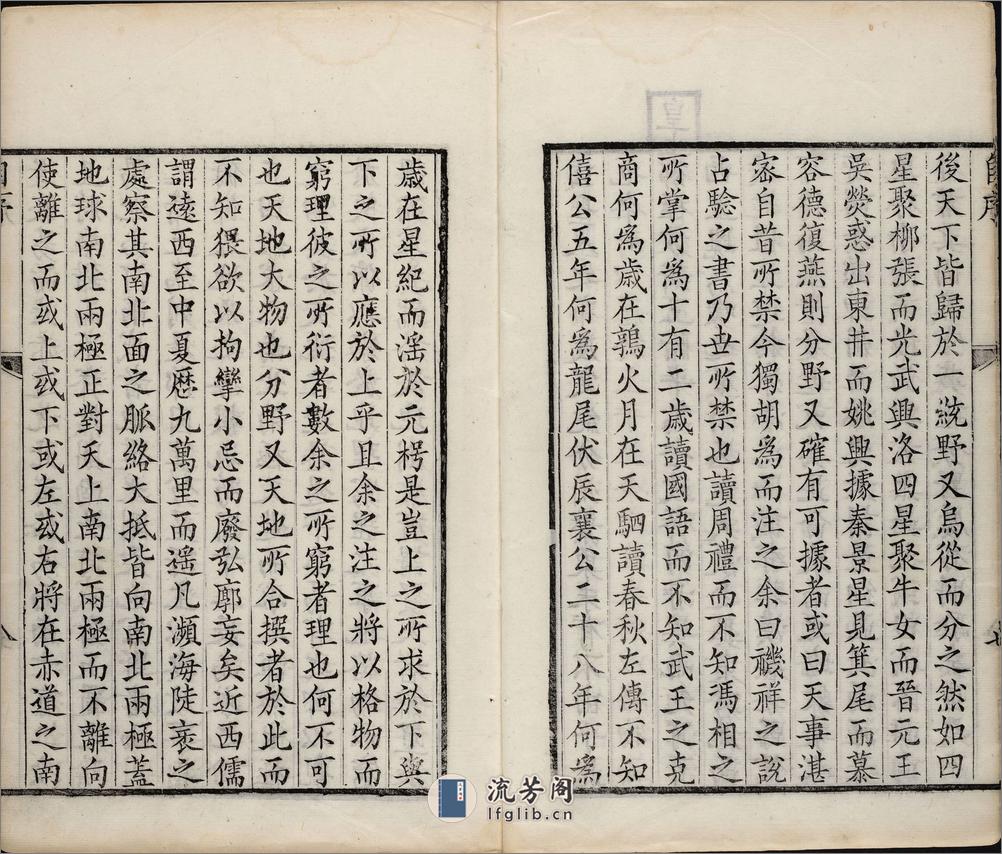 後天下皆歸於一統野又烏從而分之然如四
星聚柳張而光武興洛四星聚牛女而晉元王
吳熒惑出東井而姚興據秦景星見箕尾而慕
容德復燕則分野又確有可據者或曰天事湛
宻自昔所禁今獨胡爲而注之余曰禨祥之說
占驗之書乃世所禁也讀周禮而不知馮相之
所掌何爲十有二歲讀國語而不知武王之克
商何爲歲在鶉火月在天駟讀春秋左傳不知
僖公五年何爲龍尾伏辰襄公二十八年何爲
七
歳在星紀而淫於元枵是豈上之所求於下與
下之所以應於上乎且余之注之將以格物而
窮理彼之所衍者數余之所窮者理也何不可
也天地大物也分野又天地所合撰者於此而
不知猥欲以拘攣小忌而廢弘廓妄矣近西儒
謂遠西至中夏歷九萬里而遙凡瀕海陡衺之
處察其南北面之脈絡大抵皆向南北兩極蓋
地球南北兩極正對天上南北兩極而不離向
使離之而或上或下或左或右將在赤道之南
自序
八
流芳阁
lfglib.cn